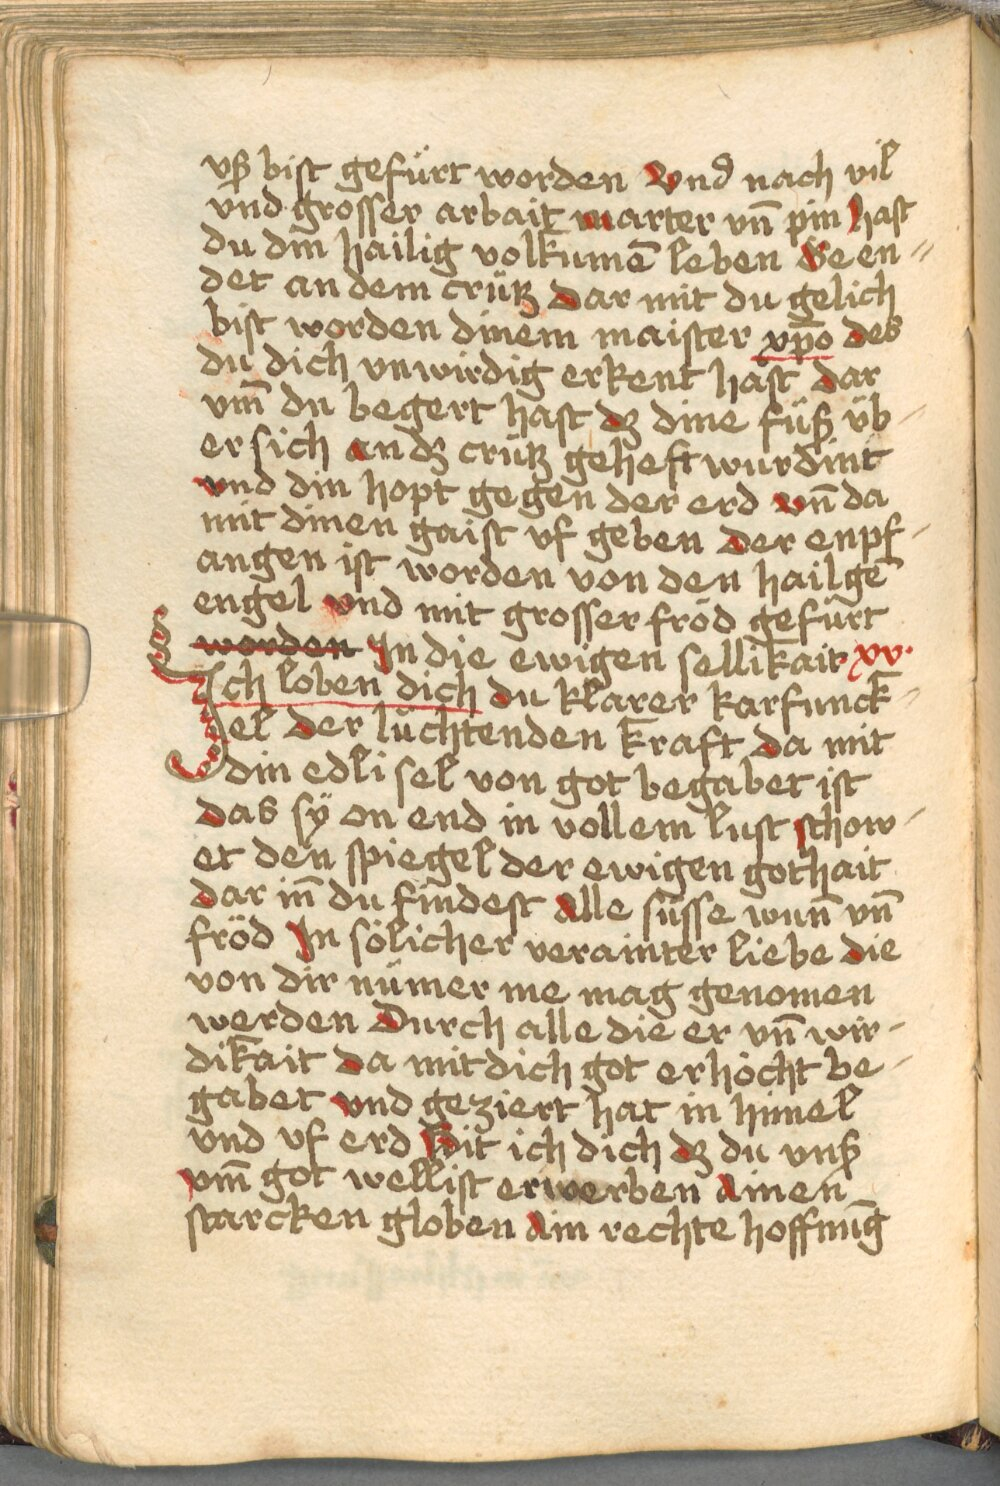 vß bist gefürt worden Vnd nach vil
vnd grosser arbait marter vn̄ pin hast
du din hailig volkumē leben Geen⸗
det an dem crütz Dar mit du gelich
bist worden dinem maister xp̄o des
du dich vnwirdig erkent hast dar
vm̄ du begert hast dz dine füß üb-
er sich an dz crütz geheft wurdint
vnd din hopt gegen der erd vn̄ da
mit dinen gaist vf geben Der enpf-
angen ist worden von den hailgē
engel vnd mit grosser fröd gefürt
worden In die ewigen sellikait xv.
Ich loben dich du klarer karfunck-
el der lüchtenden kraft da mit
din edli sel von got begabet ist
das sÿ on end in vollem lust schow-
et den spiegel der ewigen gothait
dar in̄ du findest alle süsse wun̄ vn̄
fröd In sölicher verainter liebe die
von dir nümer me mag genomen
werden Durch alle die er vn̄ wir-
dikait da mit dich got erhöcht be-
gabet vnd geziert hat in himel
vnd vf erd Bit ich dich dz du vnß
vm̄ got wellist erwerben ainen
starcken globen ain rechte hoffnūg